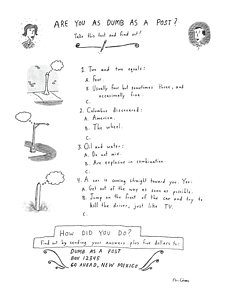 ARE YOU AS DUMB AS A POST?
Take this test and find out!
1. Two and two equals:
A. Four.
B. Usually four but sometimes three, and
occasionally five.
C.
2. Columbus discovered:
A. America.
B. The wheel.
C.
3. Oil and water:
A. Do not mix.
B. Are explosive in combination.
C.
4. A car is coming straight toward you. You:
A. Get out of the way as soon as possible.
B. Jump on the front of the car and try to
kill the driver, just like TV.
C.
HOW DID YOU DO?
Find out by sending your answers plus five dollars to:
DUMB AS A POST
BOX 12345
GO AHEAD, NEW MEXICO